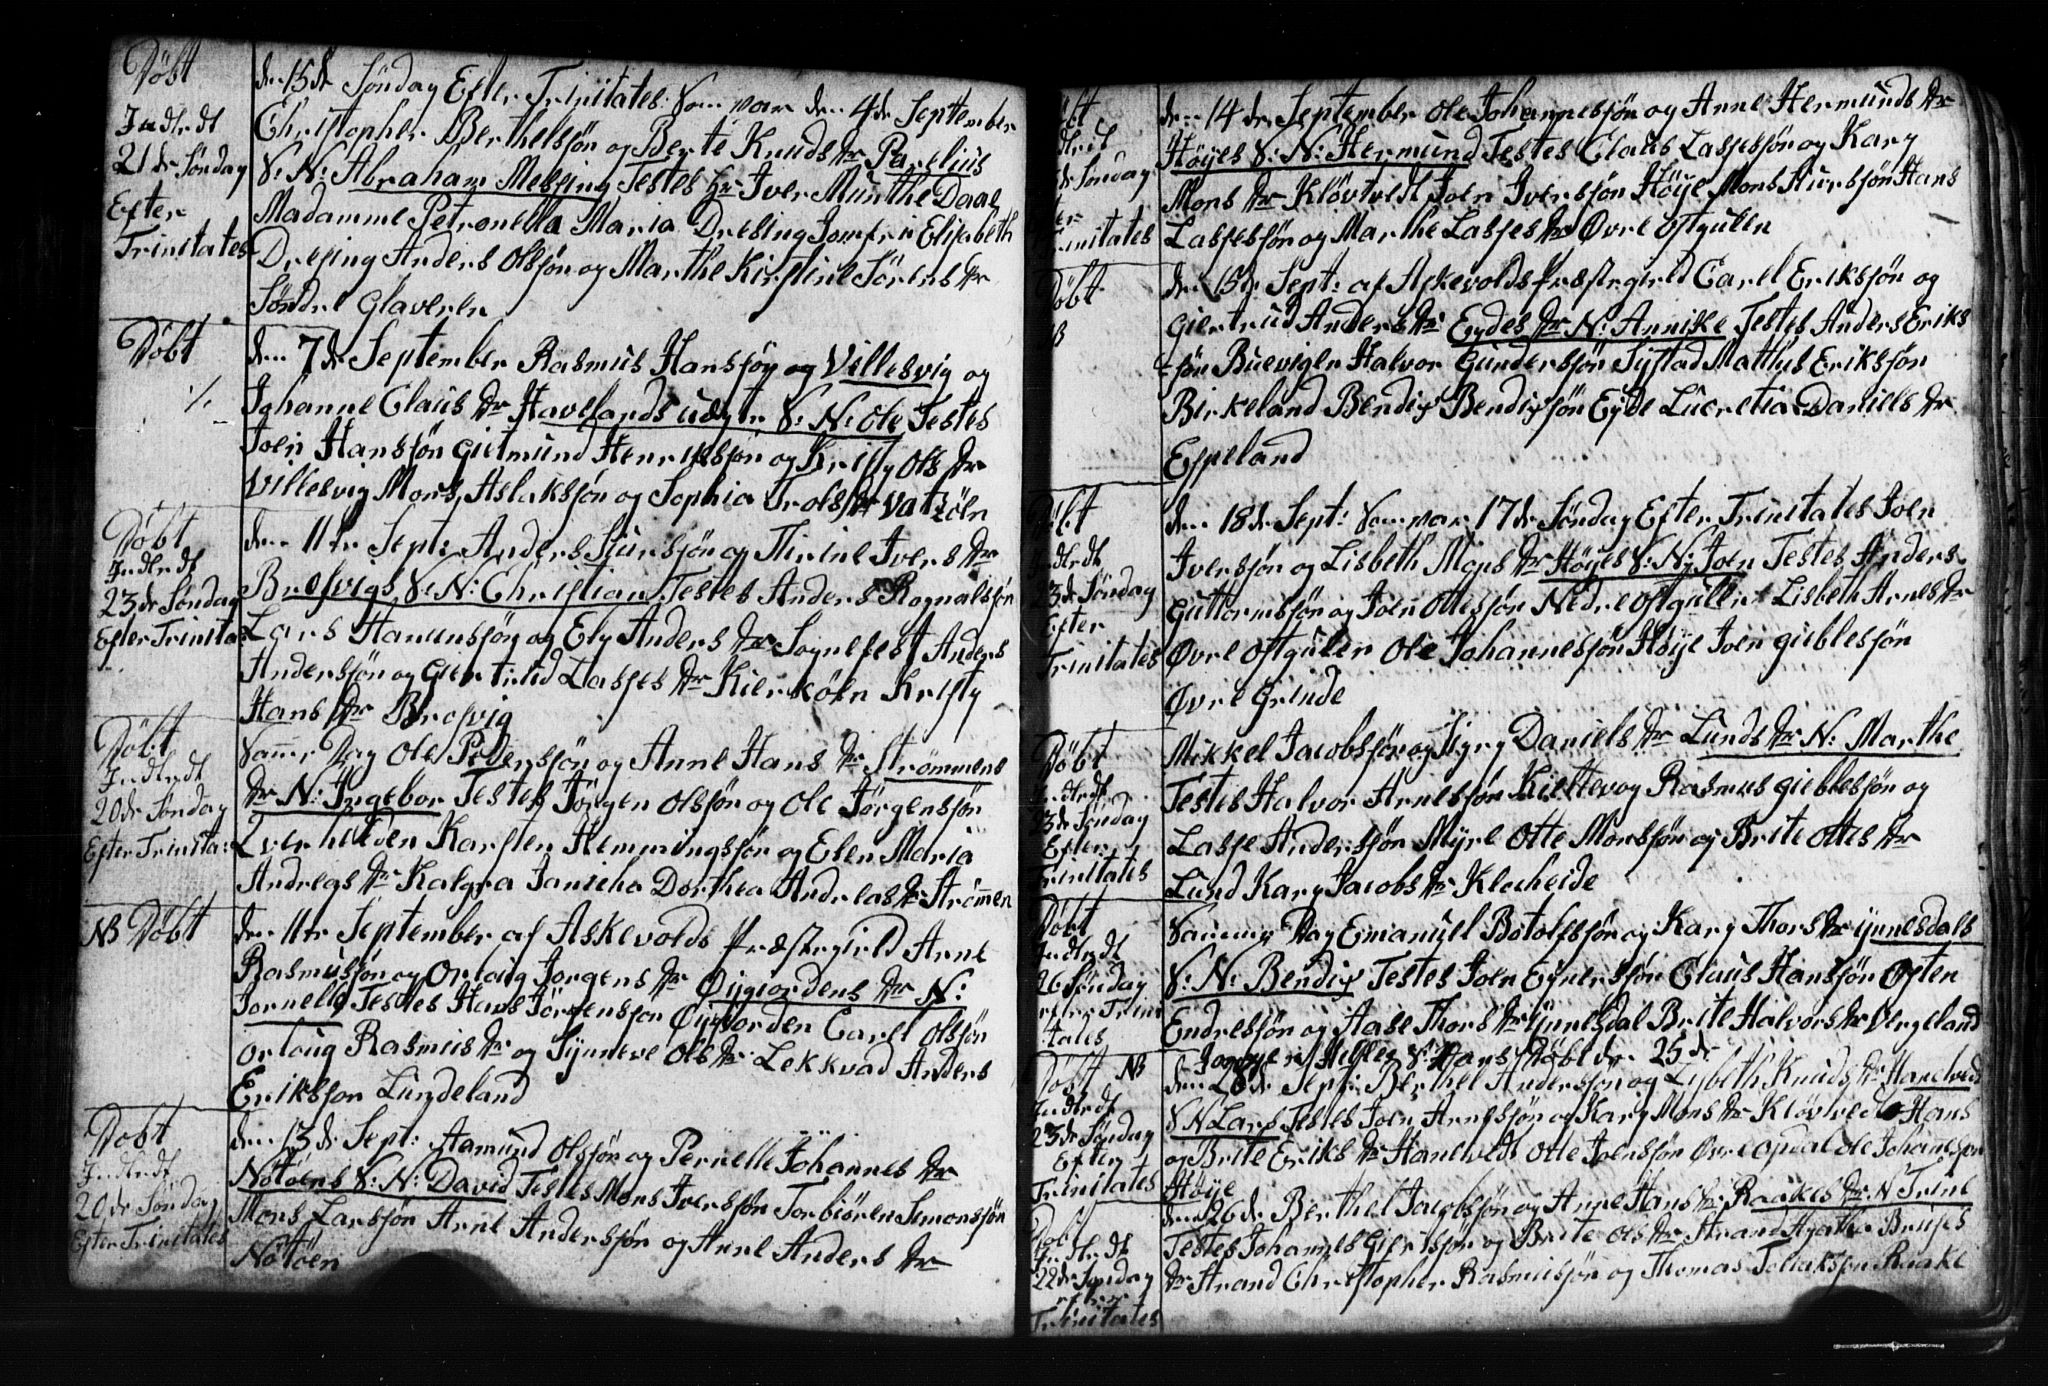 Døbt
Indledt
21de Søndag
Efter
Trinitates
den 15de Søndag Efter Trinitates Som var den 4de September
Christopher Berthelsøn og Berte Knuds dr Parelius
S: N: Abraham Messing Testes Hr Iver Munthe Daae
Madamme Petronella Maria Dresing Jomfru Elisabeth
Dresing Anders Olsøn og Marthe Kirstine Sørens dr
Søndre Glaveren
Døbt
den 7de September Rasmus Hansøn og Villesvig og
Johanne Claus dr Havelands udegte S: N: Ole Testes
Joen Hansøn Gietmund Henriksøn og Kristy Ols dr
Villesvig Mons Aslaksøn og Sophia Trols dr Vatzöen
Døbt
Indledt
23de Søndag
Efter Trinita:
den 11te Sept: Anders Siursøn og Thrine Ivers dr
Brosvigs S: N: Christian Testes Anders Rognalsøn
Lars Hanunsøn og Ely Anders dr Sognefest Anders
Andersøn og Giertrud Lasses dr Kierköen Kristy
Hans dr Brosvig
Døbt
Indledt
20de Søndag
Efter Trinita:
Samme Dag Ole Pedersøn og Anne Hans dr Strömmens
dr N: Ingebor Testes Jörgen Olsøn og Ole Jörgensøn
Lverhelden Karsten Hemmingsøn og Elen Maria
Andreas dr Kalgra Janicha Dorthea Andreas dr Strömmen
NB Døbt
den 11te September af Askevolds Præstegield Arne
Rasmusøn og Orloug Jorgens dr Öygiordens dr N:
Jornelle Testes Hans Jörgensøn Öygiorden Carl Olsøn
Orloug Rasmus dr og Synneve Ols dr Lekkvad Anders
Eriksøn Lundeland
Døbt
Indledt
20de Søndag
Efter Trinitates
den 13de Sept: Aamund Olsøn og Pernelle Johannes dr
Nötöens S: N: David Testes Mons Iversøn Torbiören Simonsøn
Mons Larsøn Arne Andersøn og Anne Anders dr
Nötöen
Søndag
Trinitates
den 14de September Ole Johannesøn og Anne Hermunds dr
Höyes S: N: Hermund Testes Claus Lassesøn og Kary
Mons dr Klövtvedt Joen Iversøn Höye Mons Siursøn Hans
Lassesøn og Marthe Lasses dr Övre Ostgulen
Døbt
NB
den 15de Sept: af Askevolds Præstegield Carel Eriksøn og
Giertrud Anders dr Eydes dr N: Annike Testes Anders Eriks
søn Buevigen Halvor Gundersøn Systad Mathis Eriksøn
Birkeland Bendix Bendixsøn Eyde Lucretia Daniels dr
Espeland
Døbt
Indledt
23de Søndag
Efter
Trinitates
den 18de Sept: Som var 17de Søndag Efter Trinitates Joen
Iversøn og Lisbeth Mons dr Höyes S: N: Joen Testes Anders
Guttormsøn og Joen Ottesøn Nedre Ostgulen Lisbeth Arnes dr
Övre Ostgulen Ole Johannesøn Höye Joen Gieblesøn
Övre Grinde
Døbt
Indledt
23de Søndag
Efter
Trinitates
Mikkel Jacobsøn og Syry Daniels dr Lunds dr N: Marthe
Testes Halvor Arnesøn Kiettevog Rasmus Gieblesøn og
Lasse Andersøn Myre Otte Monsøn og Brite Ottes dr
Lund Kary Jacobs dr Klocheide
Døbt
Indledt
26 Søndag
efter Trini
tates
Samme Dag Emanuel Botolfsøn og Kary Thors dr Ynnesdals
S: N: Bendix Testes Joen Eynersøn Claus Hansøn Osten
Endresøn og Aase Thors dr Ynnesdal Brite Halvors dr Vergeland
S: Hans Døbt den 25de
Døbt NB
Indledt
23de Søndag
Efter
Trinitates
den 26de Sept: Berthel Andersøn og Lisbeth Knuds dr Hanevedts
S N Lars Testes Joen Arnesøn og Kary Mons dr Klövtvedt Hans
og Brite Eriks dr Hanevedt Otte Joensøn Övre Opdal Ole Johannesøn
Höye
Døbt
Indledt
22de Søndag
efter
Trinitates
den 26de Berthel Jacobsøn og Anne Hans dr Raakes dr N Trine
Testes Johannes Giertsøn og Brite Ols dr Strand Agathe Bruses
dr Strand Christopher Rasmusøn og Thomas Tollaksøn Raake